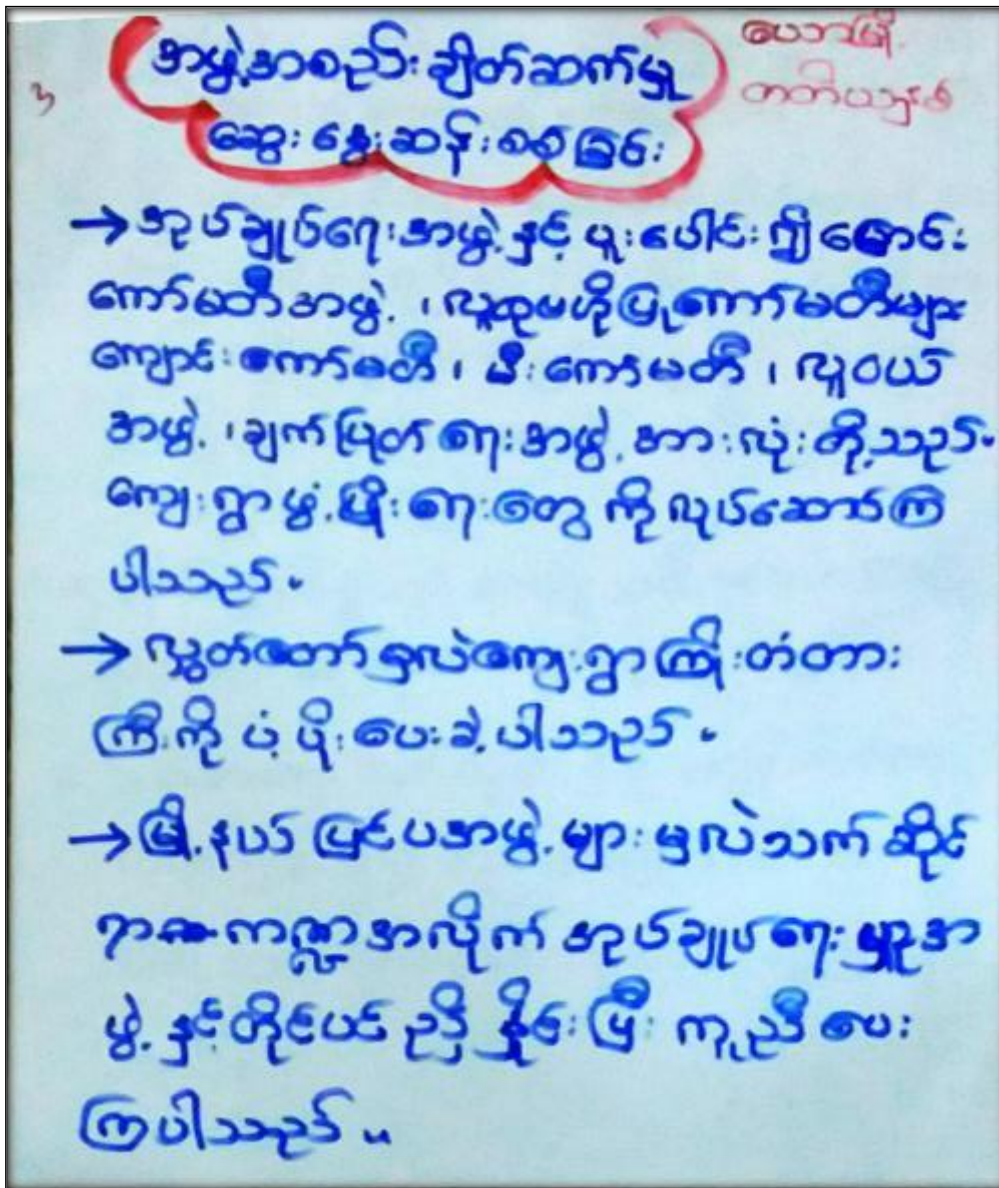 အဖွဲ့အစည်းချိတ်ဆက်မှု
ဆွေးနွေးဆန်းစစ်ခြင်း
→ အုပ်ချုပ်ရေးအဖွဲ့နှင့် ပူးပေါင်း၍ ချောင်း
ကော်မတီအဖွဲ့၊ လူထုဗဟိုပြုကော်မတီများ
ကျောင်းကော်မတီ၊ မီးကော်မတီ၊ လူငယ်
အဖွဲ့၊ ချက်ပြုတ်ရေးအဖွဲ့ အားလုံးတို့သည်
ကျေးရွာဖွံ့ဖြိုးရေးတွေကို လုပ်ဆောင်ကြ
ပါသည်။
→ လွှတ်တော်မှလဲကျေးရွာကြိုးတံတား
ကြီးကို ပံ့ပိုးပေးခဲ့ပါသည်။
→ မြို့နယ် ပြင်ပအဖွဲ့များမှလဲသက်ဆိုင်
ရာကဏ္ဍအလိုက် အုပ်ချုပ်ရေးမှူးအ
ဖွဲ့နှင့်တိုင်ပင် ညှိနှိုင်းပြီး ကူညီပေး
ကြပါသည်။